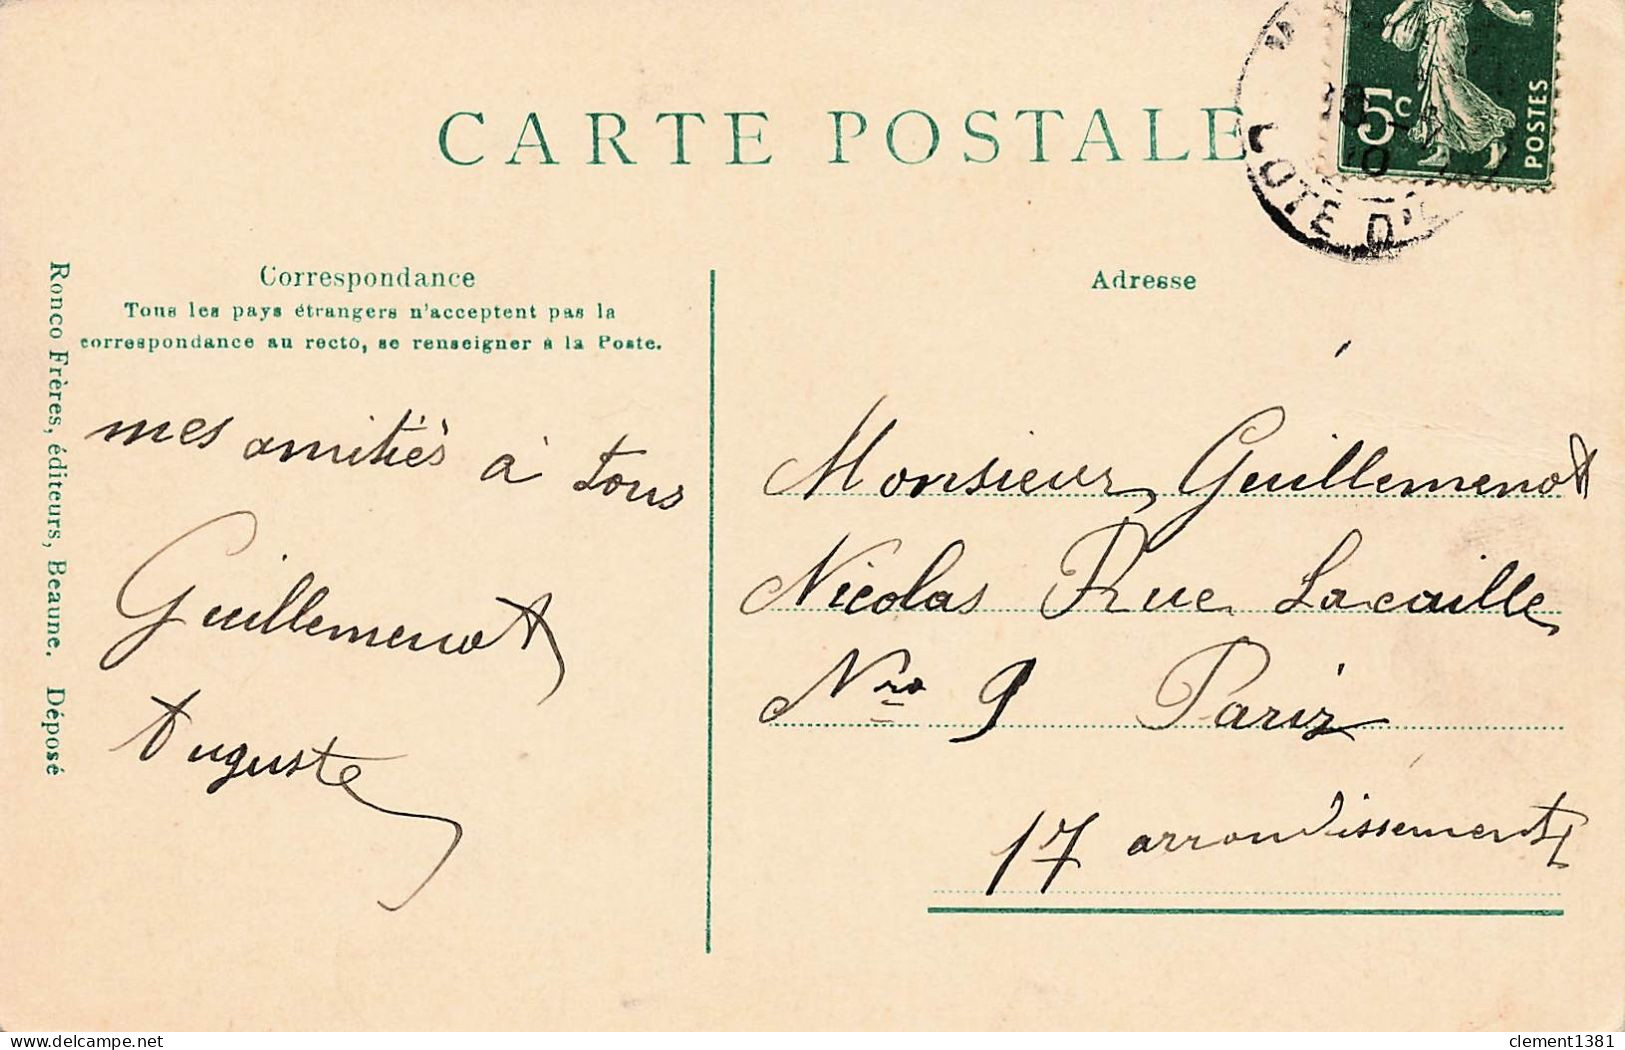 CARTE POSTALE
5c
POSTES
COTE D'
Correspondance
Tous les pays étrangers n'acceptent pas la
correspondance au recto, se renseigner à la Poste.
Adresse
Ronco Frères, éditeurs, Beaune. Déposé
mes amitiés à tous
Guillemenot
Auguste
Monsieur Guillemenot
Nicolas Rue Lacaille
Nro 9 Paris
17 arrondissement
clement1381